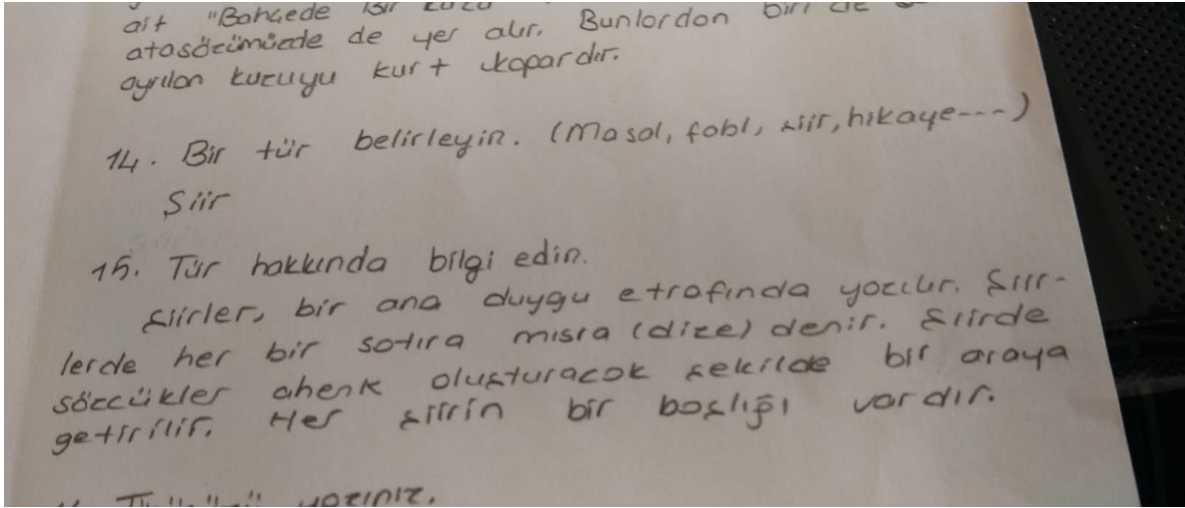 ait "Bahçede Bir
atasözümüzde de yer alır. Bunlardan biri de
ayrılan kuzuyu kurt kapardır.
14. Bir tür belirleyin. (Masal, fabl, şiir, hikaye---)
Şiir
15. Tür hakkında bilgi edin.
Şiirler, bir ana duygu etrafında yazılır. Şiir-
lerde her bir satıra mısra (dize) denir. Şiirde
sözcükler ahenk oluşturacak şekilde bir araya
getirilir. Her şiirin bir başlığı vardır.
yazınız.